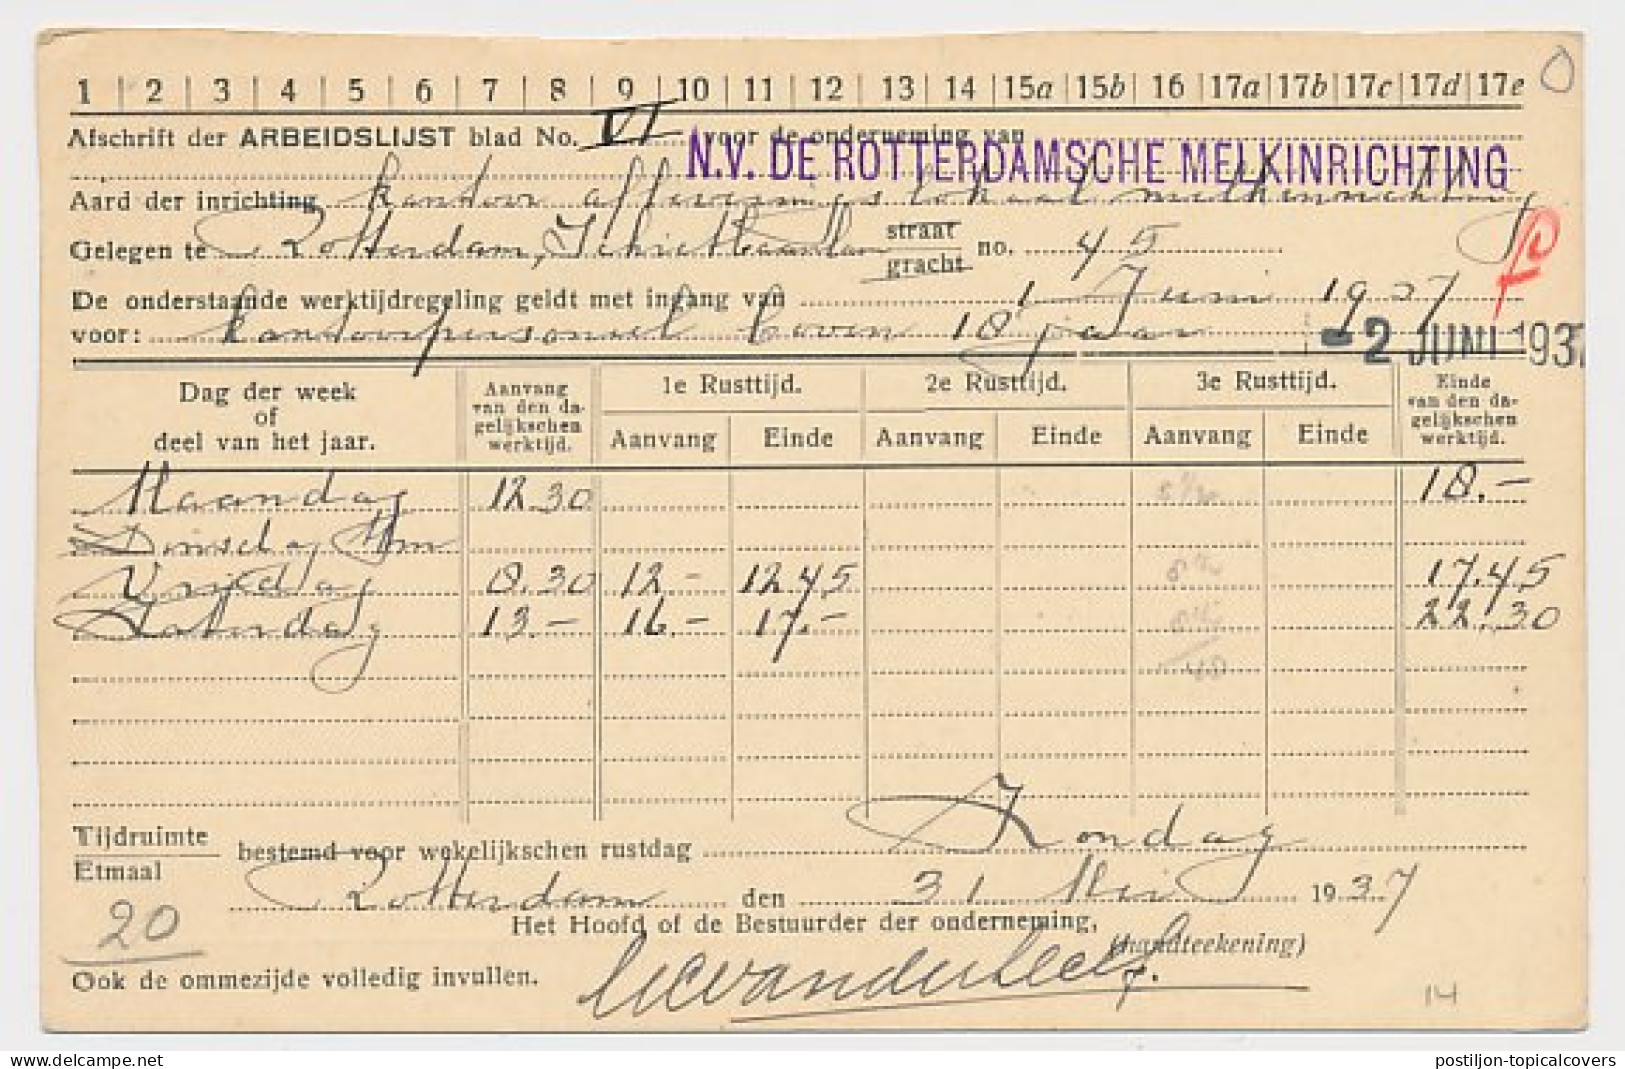 1 | 2 | 3 | 4 | 5 | 6 | 7 | 8 | 9 | 10 | 11 | 12 | 13 | 14 | 15a | 15b | 16 | 17a | 17b | 17c | 17d | 17e
Afschrift der ARBEIDSLIJST blad No. VI voor de onderneming van
N.V. DE ROTTERDAMSCHE MELKINRICHTING
Aard der inrichting kantoor afleverings lokaal melkinrichting
Gelegen te Rotterdam, Schietbaanlaan straat gracht no. 45
De onderstaande werktijdregeling geldt met ingang van 1 Juni 1937
voor: kantoorpersoneel boven 18 jaar
-2 JUNI 1937
Dag der week of deel van het jaar.
Aanvang van den dagelijkschen werktijd.
1e Rusttijd. 2e Rusttijd. 3e Rusttijd.
Einde van den dagelijkschen werktijd.
Aanvang Einde Aanvang Einde Aanvang Einde
Maandag 12.30 18.-
Dinsdag t/m
Vrijdag 8.30 12.- 12.45 17.45
Zaterdag 13.- 16.- 17.- 22.30
40
Tijdruimte
Etmaal
bestemd voor wekelijkschen rustdag Zondag
Rotterdam den 31 Mei 1937
20
Het Hoofd of de Bestuurder der onderneming,
(handteekening)
Ook de ommezijde volledig invullen.
14
postiljon-topicalcovers